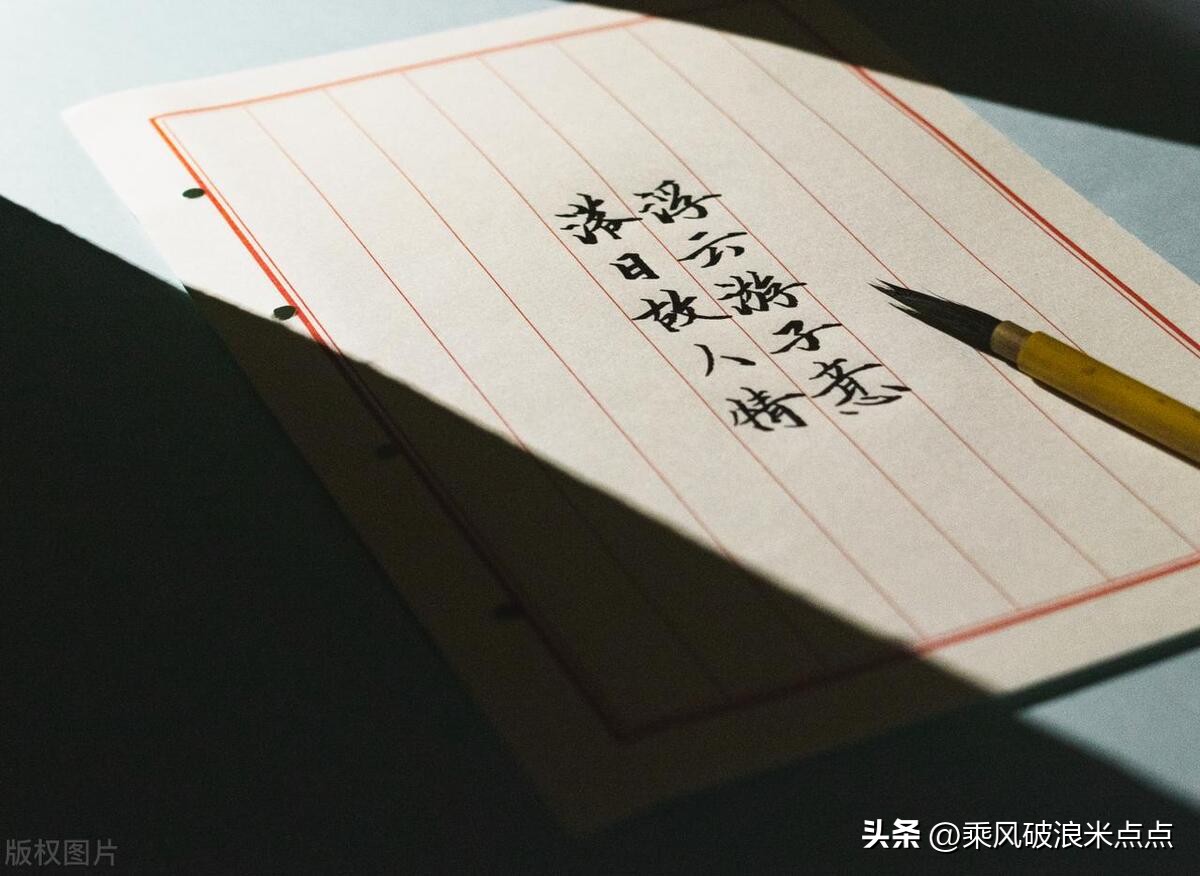 浮云游子意
落日故人情
版权图片
头条 @乘风破浪米点点